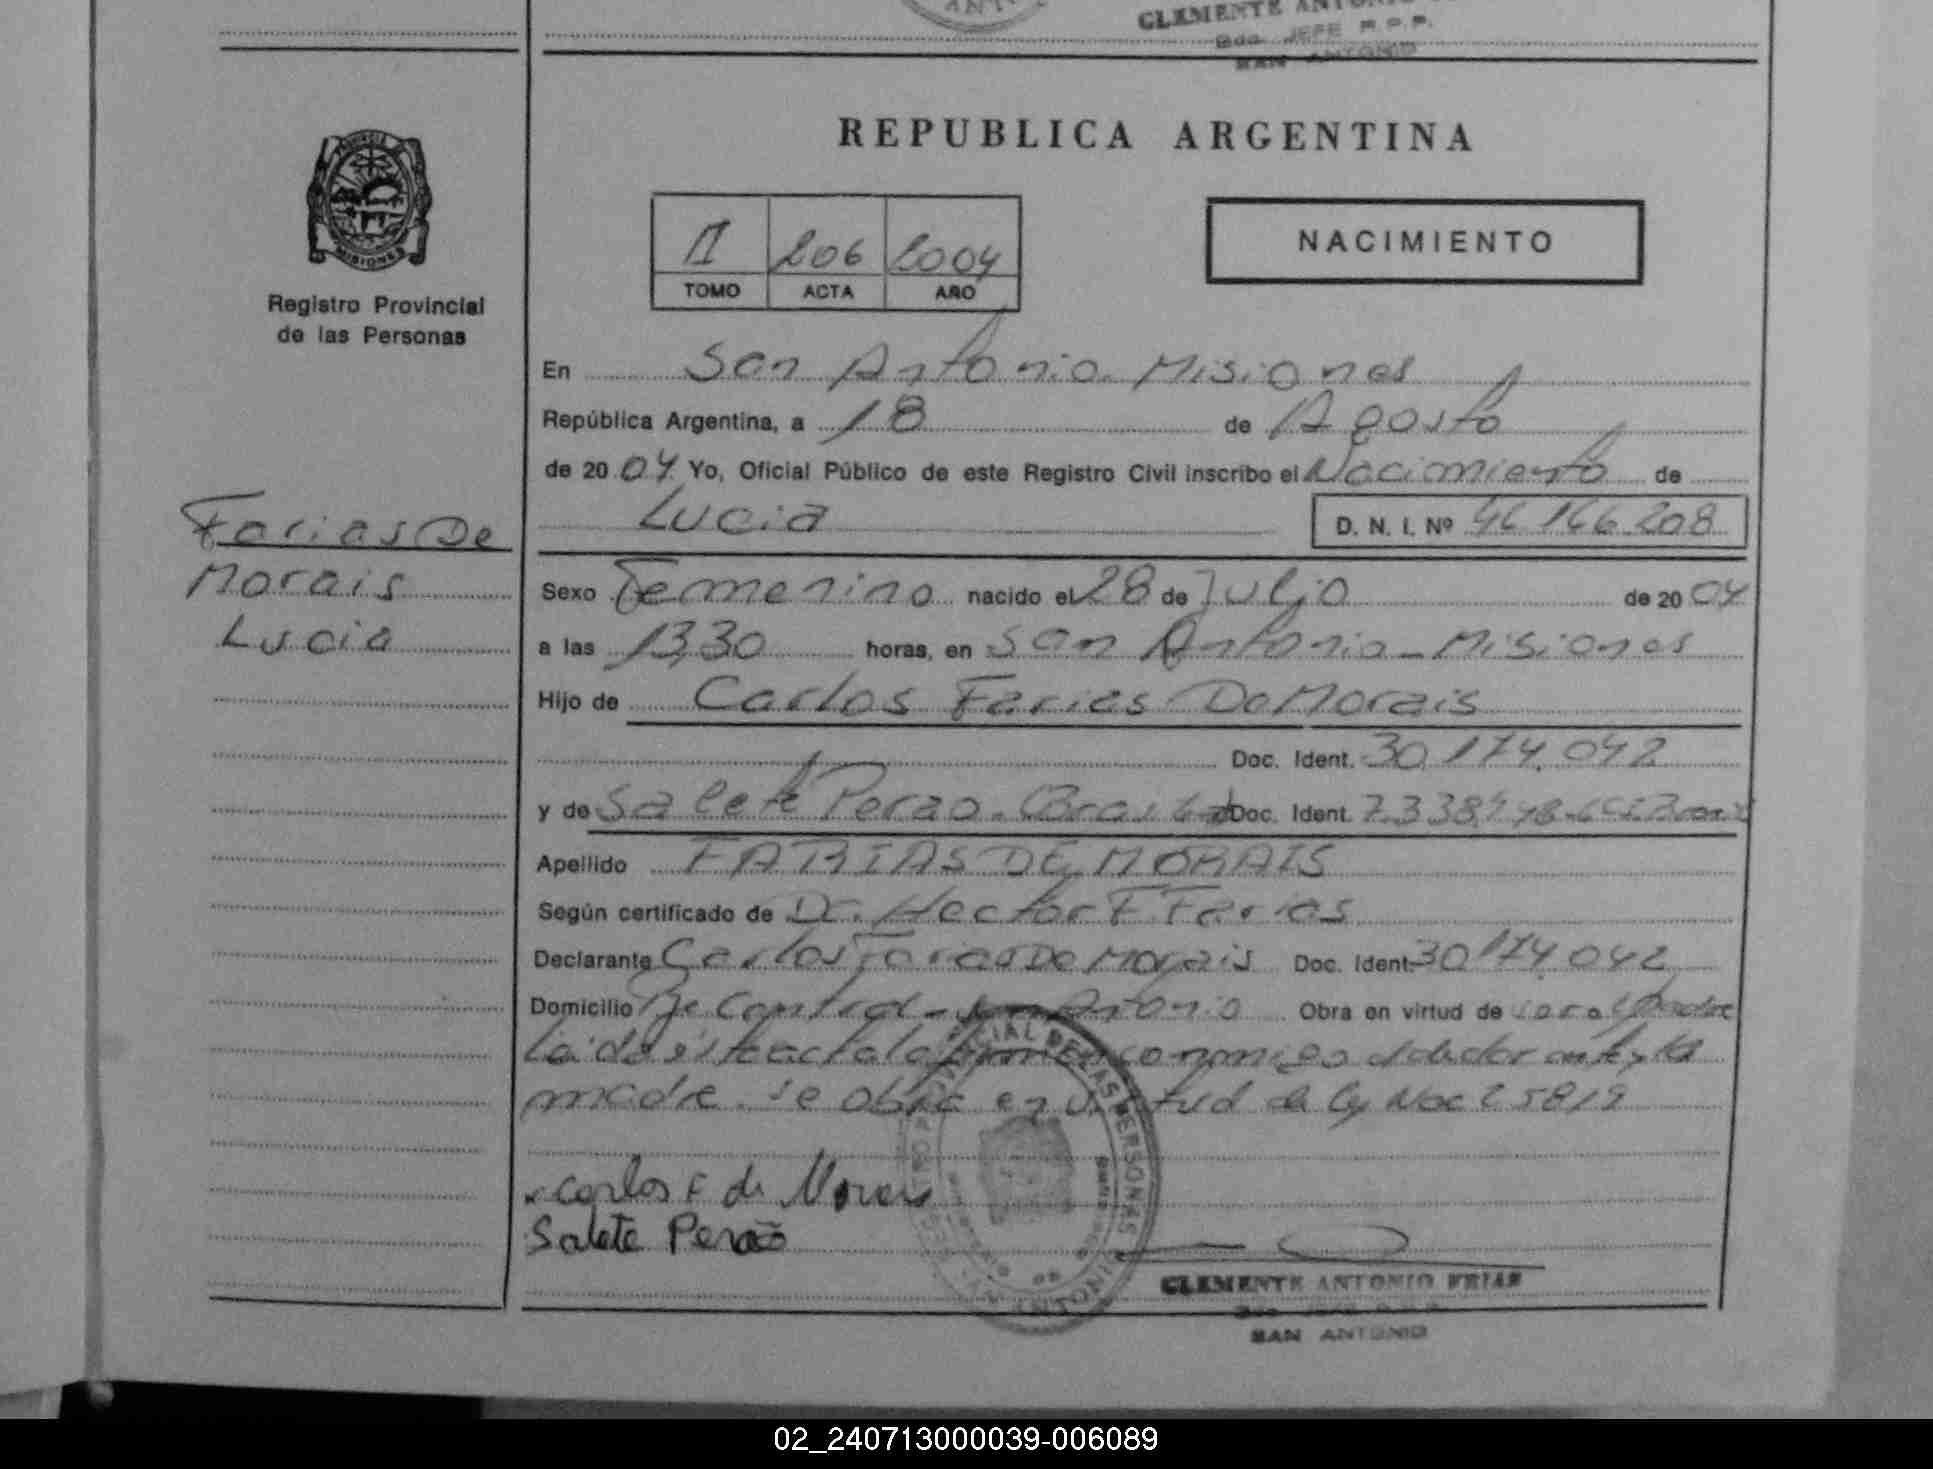 CLEMENTE ANTONIO
Bdo. JEFE R.P.P.
SAN ANTONIO
REPUBLICA ARGENTINA
PROVINCIA DE MISIONES
Registro Provincial
de las Personas
II 206 2004
TOMO ACTA AÑO
NACIMIENTO
En San Antonio Misiones
República Argentina, a 18 de Agosto
de 2004 Yo, Oficial Público de este Registro Civil inscribo el Nacimiento de
Lucia D. N. I. Nº 46.166.208
Farias De
Morais
Lucia
Sexo Femenino nacido el 28 de Julio de 2004
a las 13,30 horas, en San Antonio - Misiones
Hijo de Carlos Farias De Morais
Doc. Ident. 30.174.042
y de Salete Perao. Doc. Ident.
Apellido FARIAS DE MORAIS
Según certificado de Dr. Hector F. Farias
Declarante Carlos Farias De Morais Doc. Ident. 30.174.042
Domicilio Bje Central - San Antonio Obra en virtud de
la conmigo el declarante y la
madre. se obra en virtud de ley Nac 25819
Carlos F de Morais
Salete Perão
CLEMENTE ANTONIO FRIAS
SAN ANTONIO
02_240713000039-006089